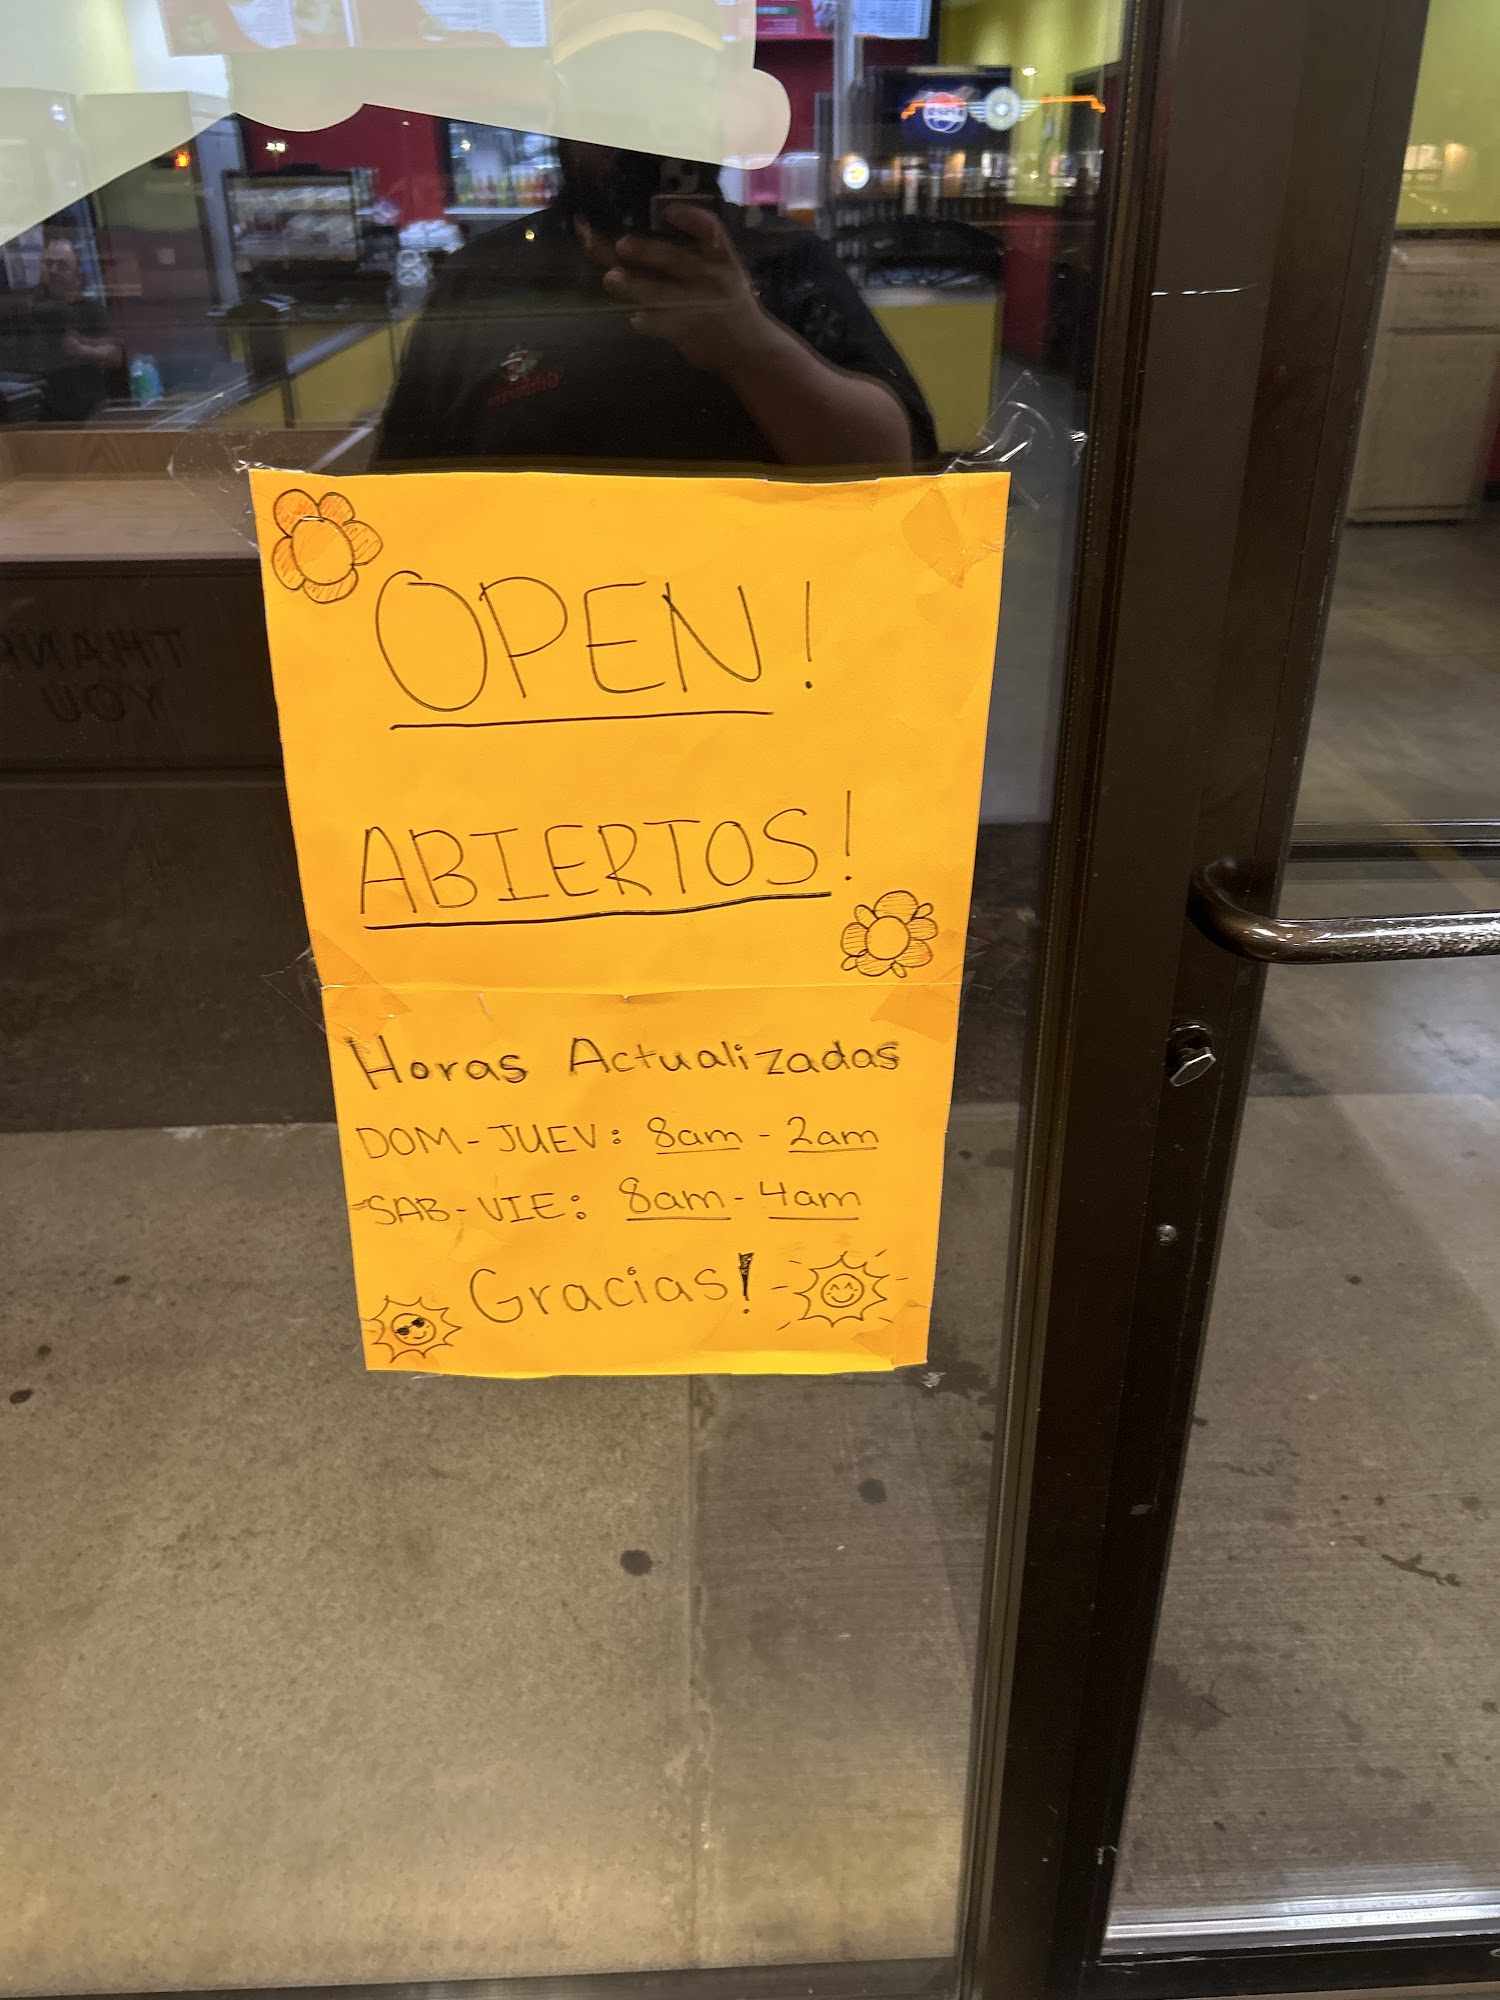 OPEN!
ABIERTOS!
Horas Actualizadas
DOM-JUEV: 8am - 2am
SAB-VIE: 8am - 4am
Gracias!
THANK
YOU